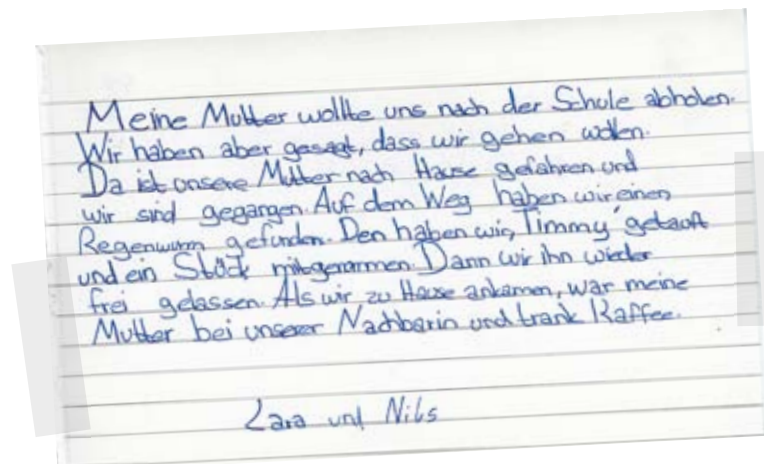 Meine Mutter wollte uns nach der Schule abholen.
Wir haben aber gesagt, dass wir gehen wollen.
Da ist unsere Mutter nach Hause gefahren und
wir sind gegangen. Auf dem Weg haben wir einen
Regenwurm gefunden. Den haben wir „Timmy" getauft
und ein Stück mitgenommen. Dann wir ihn wieder
frei gelassen. Als wir zu Hause ankamen, war meine
Mutter bei unserer Nachbarin und trank Kaffee.
Lara und Nils